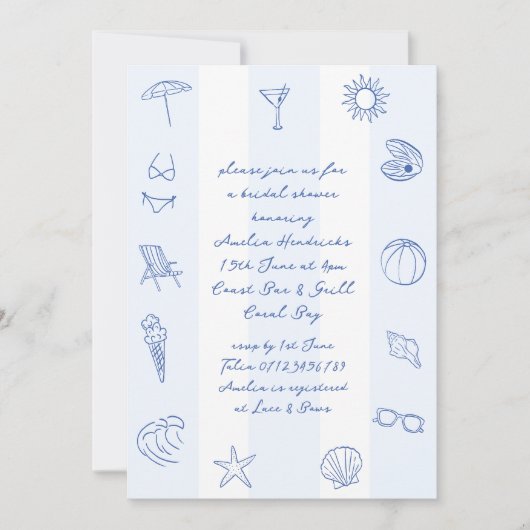 please join us for
a bridal shower
honoring
Amelia Hendricks
15th June at 4pm
Coast Bar & Grill
Coral Bay
rsvp by 1st June
Talia 07123456789
Amelia is registered
at Lace & Bows